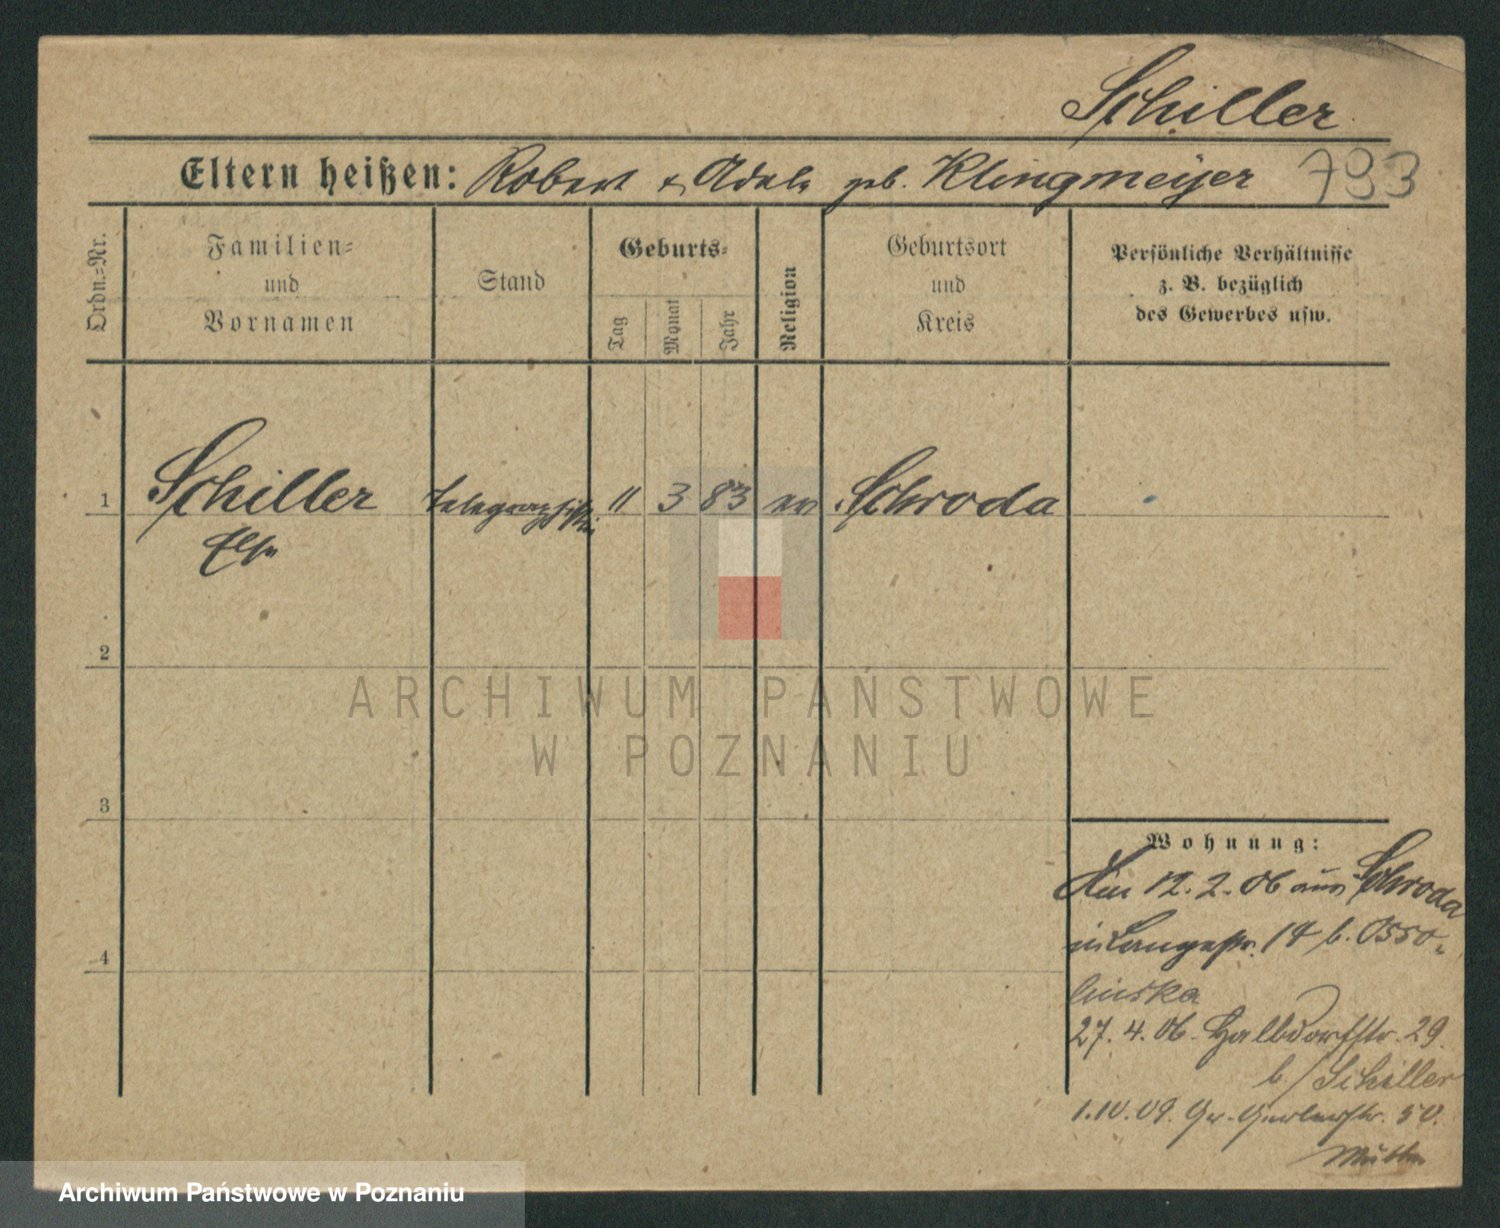 Schiller
Eltern heißen: Robert & Adele geb. Klingmeijer 793
Ordn.=Nr.
Familien=
und
Vornamen
Stand
Geburts=
Tag
Monat
Jahr
Religion
Geburtsort
und
Kreis
Persönliche Verhältnisse
z. B. bezüglich
des Gewerbes usw.
1 Schiller Telegraphistin 11 3 83 ev Schroda
Else
2
3
4
ARCHIWUM PAŃSTWOWE
W POZNANIU
Wohnung:
12. 2. 06 aus Schroda
in Langestr. 14 b. Osso-
linska
27. 4. 06. Halbdorfstr. 29.
b/ Schiller
1.10.09. Gr. Gerberstr. 50.
Mutter
Archiwum Państwowe w Poznaniu